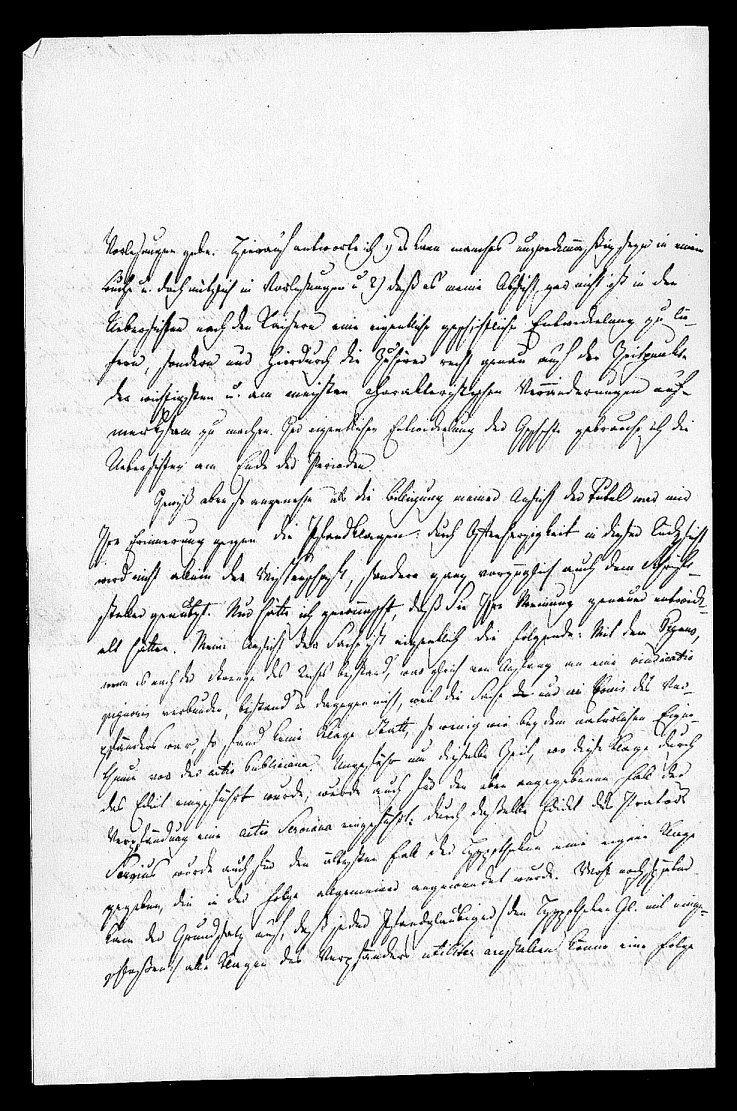 Vorlesungen gebe. Hierauf antworte ich 1) es kann manches unzweckmäßig seyn in einem
Buche u. doch nützlich in Vorlesungen u 2) daß es meine Absicht gar nicht ist in den
Uebersichten nach den Kaisern eine eigentliche geschichtliche Entwickelung zu lie-
fern, sondern nur hierdurch die Zuhörer recht genau auf die Zeitpunkte
der wichtigsten u. am meisten charakteristischen Veränderungen auf-
merksam zu machen. Zur eigentlichen Entwickelung der Geschichte gebrauche ich die
Uebersichten am Ende der Perioden.
Gewiß eben so angenehm als die Billigung meiner Ansicht der Tutel war mir
Ihre Erinnerung gegen die Pfandklagen: durch Offenherzigkeit in dieser Rücksicht
wird nicht allein der Wissenschaft, sondern ganz vorzüglich auch dem Schrift-
steller genützt. Nur hätte ich gewünscht, daß Sie Ihre Meinung genauer entwick-
elt hätten. Meine Ansicht der Sache ist eigentlich die folgende: Mit dem Pignus,
wenn es nach der Strenge des Rechts bestand, war gleich von Anfang an eine vindicatio
pignoris verbunden, bestand es dagegen nicht, weil die Sache nur in bonis des Ver-
pfänders war, so fand keine Klage Statt, so wenig wie bey dem natürlichen Eigen-
thum vor der actio Publiciana. Ungefähr um dieselbe Zeit, wo diese Klage durch
das Edict eingeführt wurde, wurde auch für den eben angegebenen Fall der
Verpfändung eine actio Serviana eingeführt: durch dasselbe Edict des Prätors
Servius wurde auch für den ältesten Fall der Hypotheken eine eigene Klage
gegeben, die in der Folge allgemeiner angewendet wurde. Erst nachher
kam der Grundsatz auf, daß jeder Pfandgläubiger (den Hypotheken Gl. mit einge-
schlossen) alle Klagen des Verpfänders utiliter anstellen könne eine Folge